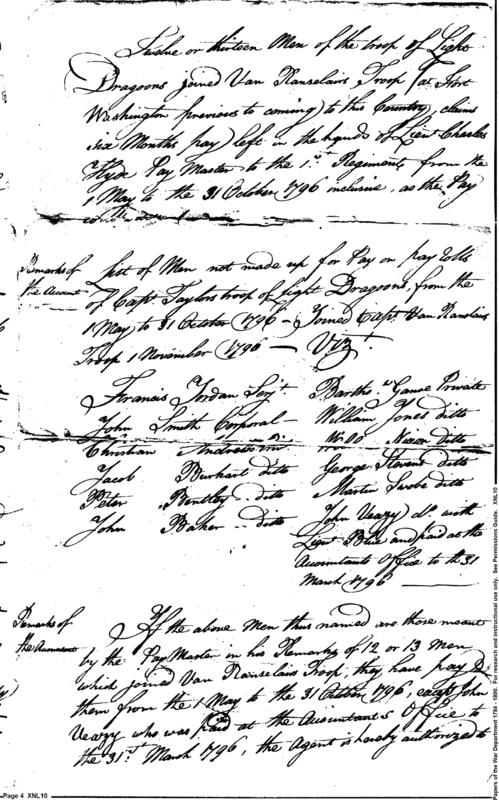 Twelve or thirteen Men of the troop of Light
Dragoons joined Van Ranselairs Troop (at Fort
Washington previous to coming) to this Country, claims
six Months pay) left in the hands of Lieut. Charles
Hyde Pay Master to the 1st. Regiment, from the
1 May to the 31 October 1796 inclusive, as the Pay
Remarks of
the Accountant
List of Men not made up for Pay on pay Rolls
of Capt. Taylors troop of Light Dragoons, from the
1 May to 31 October 1796 - Joined Capt. Van Ranslairs
Troop 1 November 1796 — Vizt.
Francis Jordan Serjt. Barthw. Ganoe Private
John Smith Corporal - William Jones ditto
Christian Nixon ditto
Jacob Burkart ditto George Stevens ditto
Peter Bentley ditto Martin ditto
John Baker ditto John Veazy do. with
Lieut. Blue and paid at the
Accountants Office to the 31
March 1796
Remarks of
the Accountant
If the above Men thus named are those meant
by the Pay Master in his Remarks of 12 or 13 Men
which joined Van Ranselairs Troop, they have pay
them from the 1 May to the 31 October 1796, except John
Veazy who was paid at the Accountants Office to
the 31st. March 1796, the Agent is hereby authorized to
Page 4 XNL10
Papers of the War Department 1784 - 1800. For research and instructional use only. See Permissions Guide. XNL10